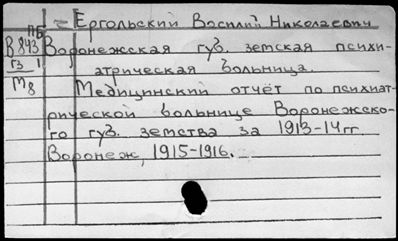 ПБ
= Ергольский Василий Николаевич
В 843 Воронежская губ. земская психи-
Г3 1 атрическая больница.
М8 Медицинский отчёт по психиат-
рической больнице Воронежско-
го губ. земства за 1913-14гг
Воронеж, 1915-1916.